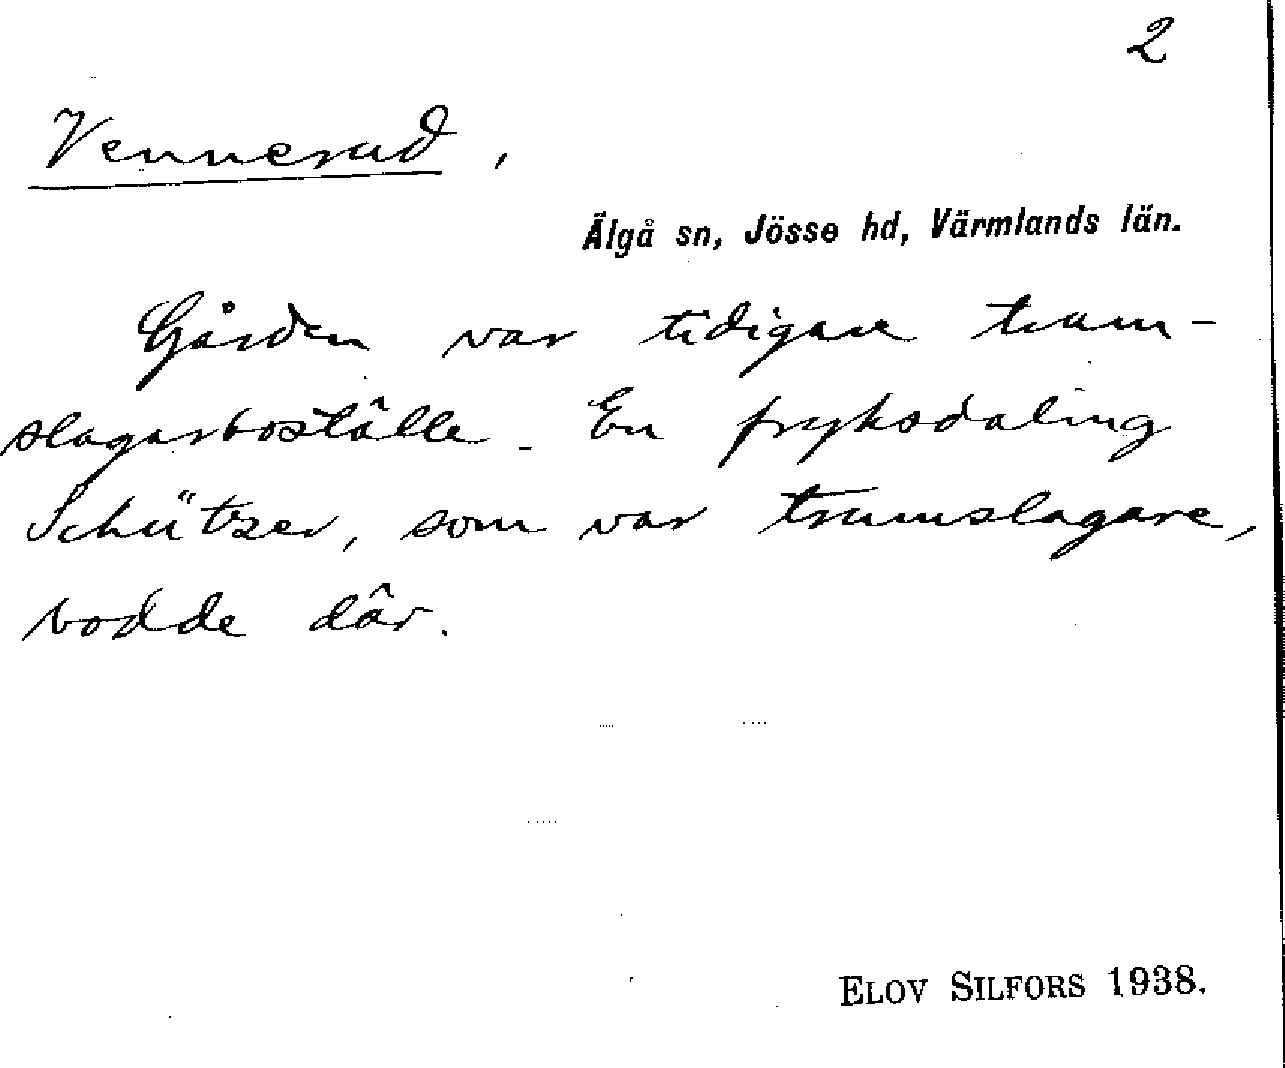 2
Vennerud,
Älgå sn, Jösse hd, Värmlands län.
Gården var tidigare trum-
slagarboställe. En fryksdaling
Schützer, som var trumslagare,
bodde där.
ELOV SILFORS 1938.